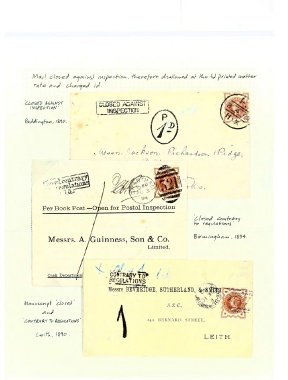 Mail closed against inspection, therefore disallowed at the ½d printed matter
rate and charged 1d.
'CLOSED AGAINST
INSPECTION'
Paddington, 1890.
CLOSED AGAINST
INSPECTION
P
1D
Messrs Jackson Richardson
closed contrary
regulations
321
Per Book Post—Open for Postal Inspection
Messrs. A. Guinness, Son & Co.
Limited.
Closed contrary
to regulations
Birmingham, 1894
Manuscript 'closed'
and
'CONTRARY TO REGULATIONS'
Leith, 1890
CONTRARY TO
REGULATIONS
Messrs BEVERIDGE, SUTHERLAND, & SMITH
S.S.C.
BERNARD STREET,
LEITH
1